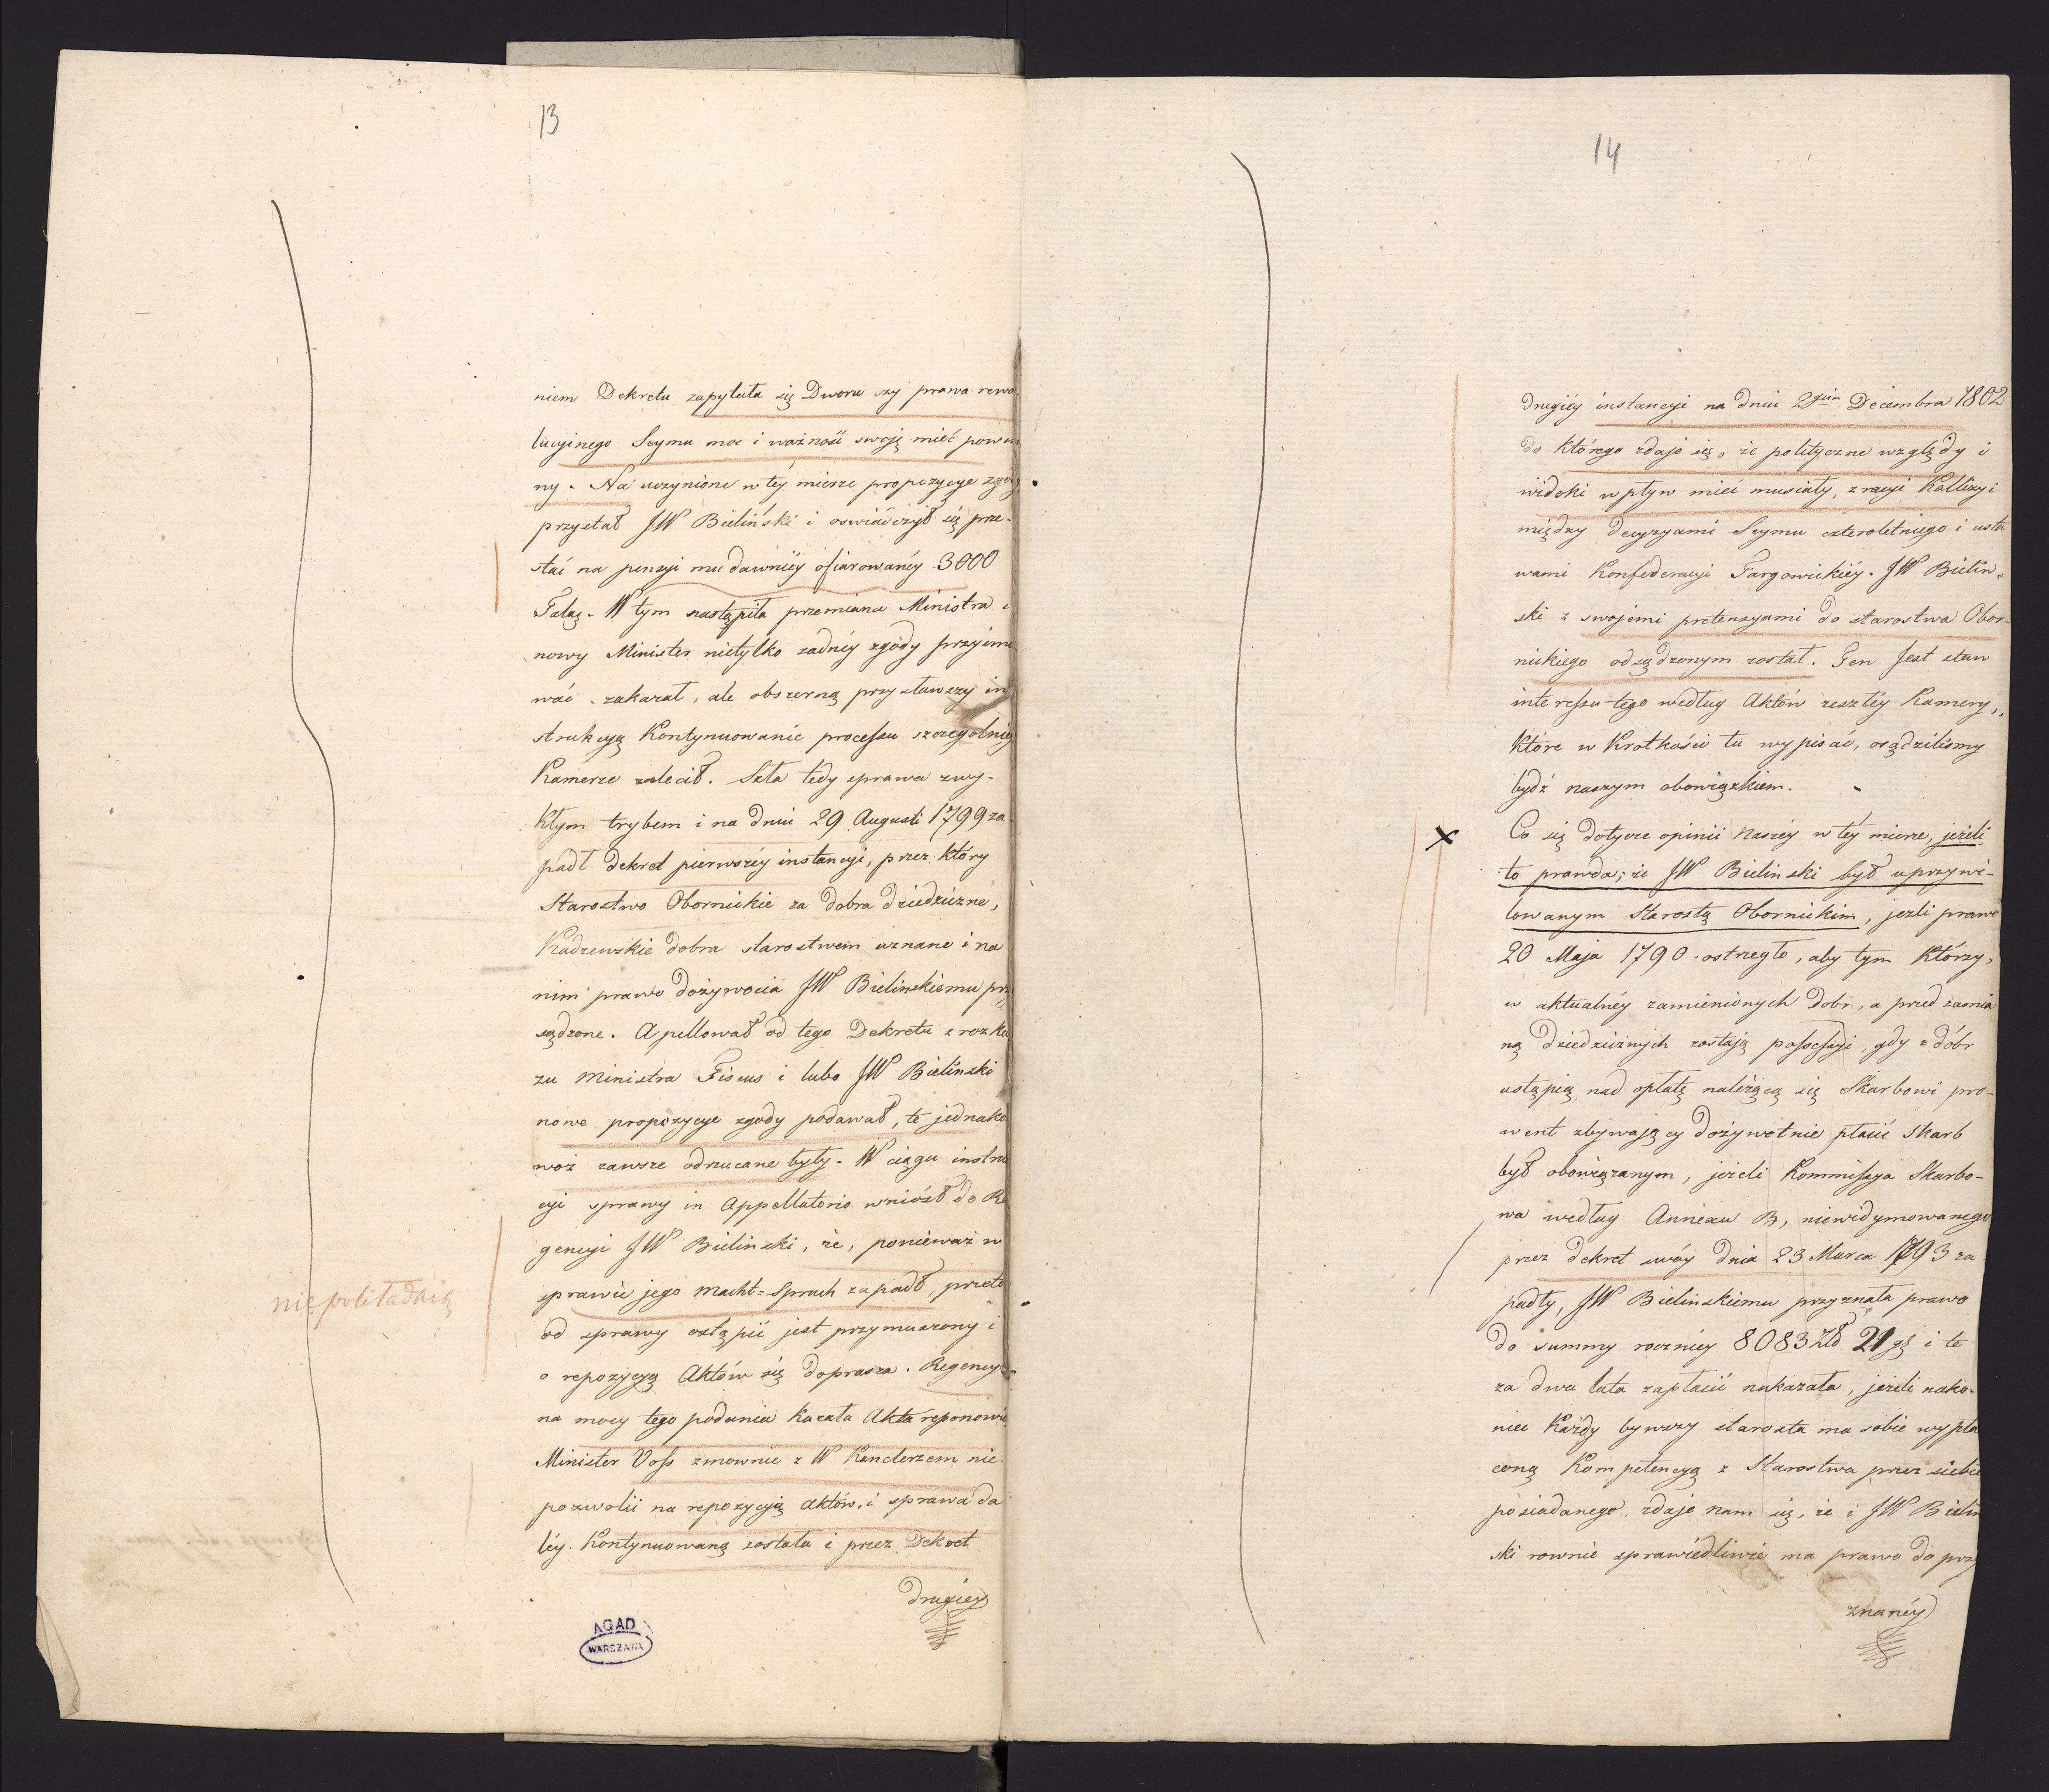 13
niem Dekretu zapytała się Dworu czy prawa rewo-
lucyjnego Seymu moc i ważność swoją mieć powin
ny. Na uczynione w téy mierze propozycye zgody
przystał JW Bieliński i oswiadczył się prze-
stać na pensyi mu dawniéy ofiarowanéy 3000
Talaę. W tym nastąpiła przemiana Ministra i
nowy Minister nietylko żadnéy zgody przyimo
wać zakazał, ale obszerną przysławszy in
strukcyą Kontynuowanie processu szczegolniéy
Kamerze zalecił. Szła tedy sprawa zwy-
kłym trybem i na dniu 29 Augusti 1799 za
padł Dekret pierwszéy instancyi, przez który
Starostwo Obornickie za dobra dziedziczne,
Kadzewskie dobra starostwem uznane i na
nim prawo dożywocia JW Bielinskiemu przy
sądzone. Apellował od tego Dekretu z rozka
zu Ministra Fiscus i lubo JW Bielinski
nowe propozycye zgody podawał, te jednako
woż zawsze odrzucane były. W ciągu instru
cyi sprawy in Appellatorio wniósł do Re
gencyi JW Bielinski, że, ponieważ w
sprawie jego Macht=Spruch zapadł, przeto
od sprawy ostąpić jest przymuszony i
o repozycyą Aktów się doprasza. Regencya
na mocy tego podania kazała Akta reponować
Minister Voss zmownie z W Kanclerzem nie
pozwolił na repozycyą aktów, i sprawa da
léy Kontynuowaną została i przez Dekret
drugiey
niepolitadaią
AGAD
WARSZAWA
14
drugiéy instancyi na dniu 2gim Decembra 1802
do którego zdaje się, że polityczne względy i
widoki wpływ mieć musiały, z racyi Kollizyi
między decyzyami Seymu czteroletniego i usta
wami Konfederacyi Targowickiéy. JW Bielin-
ski z swojemi pretensyami do starostwa Obor-
nickiego odsądzonym został. Ten jest stan
interessu tego według Aktów zeszłéy Kamery,
które w krotkości tu wypisać, osądzilismy
bydź naszym obowiązkiem.
Co się dotycze opinii Naszéy w téy mierze, jeżeli
to prawda, że JW Bielinski był uprzywi-
lowanym Starostą Obornickim, jeżli prawo
20 Maja 1790 ostrzegło, aby tym którzy
w aktualnéy zamienionych Dobr, a przed zamia
ną Dziedzicznych zostają possessyi, gdy z dóbr
ustąpią, nad opłatę należącą się Skarbowi pro-
went zbywający dożywotnie płacić Skarb
był obowiązanym, jeżeli Kommissya Skarbo-
wa według Annexu B, niewidymowanego
przez dekret swóy dnia 23 Marca 1793 za
padły, JW Bielinskiemu przyznała prawo
do summy rocznéy 8083 Zł 21 gę i te
za dwa lata zapłacić nakazała, jeżeli nako-
niec każdy bywszy starosta ma sobie wypła
coną Kompetencyą z Starostwa przez siebie
posiadanego, zdaje nam się, że i JW Bielin
ski rownie sprawiedliwie ma prawo do przy
znanéy